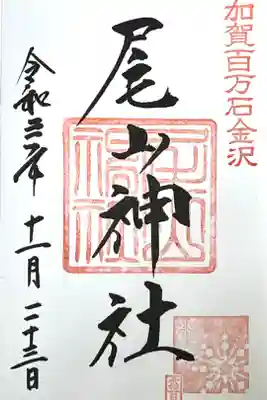 加賀百万石金沢
尾山神社
令和三年十一月二十三日